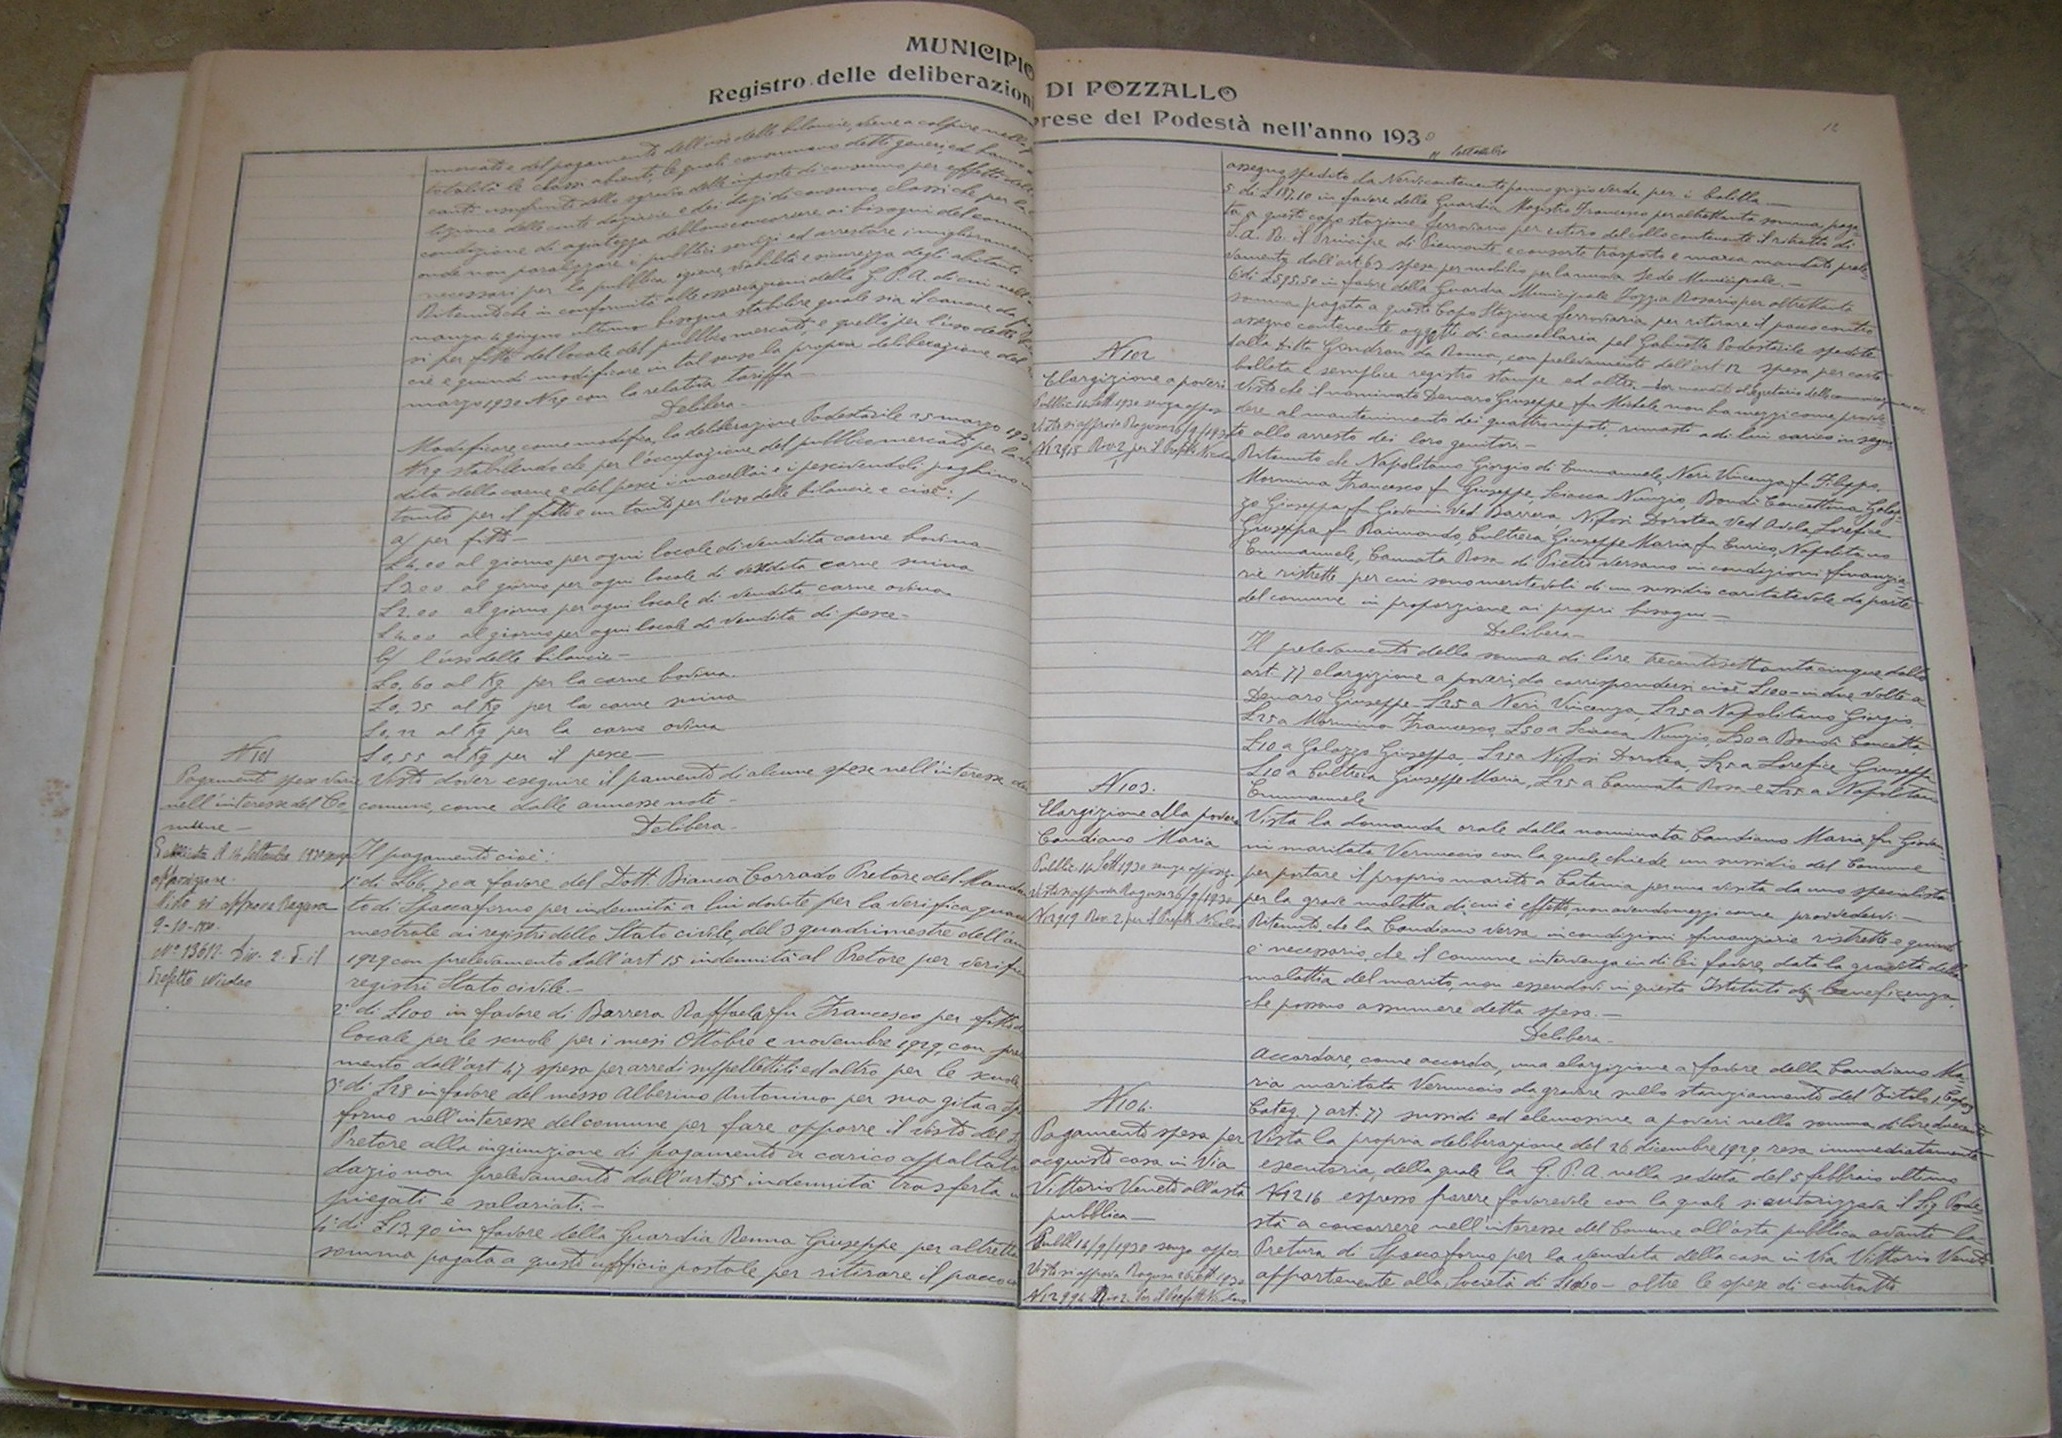 MUNICIPIO DI POZZALLO
Registro delle deliberazioni prese del Podestà nell'anno 1930
mercato e del pagamento dell'uso delle bilancie, viene a colpire nella
totalità le classi abienti, le quali consumano detti generi, ed hanno
condizione di agiatezza debbono concorrere ai bisogni del comune
onde non paralizzare i pubblici servizi ed arrestare i miglioramenti
necessari per la pubblica igiene, viabilità e sicurezza degli abitanti
Ritenuto che in conformità alle osservazioni della G. P. A. di cui nell'
nanza 4 giugno ultimo bisogna stabilire quale sia il canone da
si per fitto del locale del pubblico mercato, e quello per l'uso delle
cie e quindi modificare in tal senso la propria deliberazione del
marzo 1930 N 29 con la relativa tariffa —
Delibera —
Modificare, come modifica, la deliberazione Podestarile 25 marzo 193
N 29 stabilendo che per l'occupazione del pubblico mercato per la
dita della carne e del pesce i macellai e i pescivendoli paghino
tanto per il fitto e un tanto per l'uso delle bilancie e cioè: /
a/ per fitto —
L 4.00 al giorno per ogni locale di vendita carne bovina —
L 3.00 al giorno per ogni locale di vendita carne suina
L 2.00 al giorno per ogni locale di vendita carne ovina
L 4.00 al giorno per ogni locale di vendita di pesce —
b/ l'uso delle bilancie —
L 0,60 al Kg per la carne bovina.
L 0,35 al Kg per la carne suina
L 0,22 al Kg per la carne ovina
L 0,55 al Kg per il pesce —
N 101
Pagamenti spese varie
nell'interesse del Co
mune —
Pubblicata il 14 settembre 1930 senza
opposizione.
Visto si approva Ragusa
9-10-1930.
N° 13612. Div. 2. P. il
Prefetto Nicolao
Visto dover eseguire il pamento di alcune spese nell'interesse del
comune, come dalle annesse note —
Delibera —
Il pagamento cioè:
1° di L 66,70 a favore del Dott. Bianca Corrado Pretore del Manda
to di Spaccaforno per indennità a lui dovute per la verifica quadri
mestrale ai registri dello Stato civile, del 3 quadrimestre dell'an
1929 con prelevamento dall'art 15 indennità al Pretore per verific
registri Stato civile. —
2° di L 100 in favore di Barrera Raffaela fu Francesco per fitto
locale per le scuole per i mesi Ottobre e novembre 1929, con prele
mento dall'art 47 spesa per arredi suppellettili ed altro per le scuole
3° di L 28 in favore del messo Alberino Antonino per sua gita a Spacca
forno nell'interesse del comune per fare apporre il visto del
Pretore alla ingiunzione di pagamento a carico appaltato
dazio non prelevamento dall'art 55 indennità trasferta im
piegati e salariati. —
4° di L 13,90 in favore della Guardia Renna Giuseppe per altrettanta
somma pagata a questo ufficio postale per ritirare il pacco
12
assegno spedito da Nervi contenente panno grigio verde per i balilla —
5 di L 187,10 in favore della Guardia Magistro Francesco per altrettanta somma paga
ta a questo capo stazione ferroviaria per ritiro del collo contenente il ritratto di
S. A. R. il Principe di Piemonte e consorte trasporto e marca mandato prele
vamento dall'art 63 spesa per mobilio per la nuova Sede Municipale. —
6 di L 595.50 in favore della Guardia Municipale Iozzia Rosario per altrettanta
somma pagata a questo Capo Stazione ferroviaria per ritirare il pacco contro
assegno contenente oggetti di cancelleria pel Gabinetto Podestarile spedito
dalla ditta Gondrand da Roma, con prelevamento dell'art 12 spesa per carta
bollata e semplice registro stampe ed altro.
N 102
Elargizione a poveri
Pubblic. 14 Sett 1930 senza oppos
Visto si approva Ragusa 26/9/1930
N 12915 Div 2 per il Prefetto Nicolao
Visto che il nominato Denaro Giuseppe fu Michele non ha mezzi come provve
dere al mantenimento dei quattro nipoti, rimasti a di lui carico in segui
to allo arresto dei loro genitori —
Ritenuto che Napolitano Giorgio di Emmanuele, Neri Vincenza fu Filippo,
Mormina Francesco fu Giuseppe, Sciacca Nunzio, Bondì Concettina, Galaz
zo Giuseppa fu Giovanni Ved Barrera, Nifosì Dorotea Ved Avola, Lorefice
Giuseppa fu Raimondo, Cultrera Giuseppe Maria fu Enrico, Napolitano
Emmanuele, Cannata Rosa di Pietro versano in condizioni finanzia
rie ristrette per cui sono meritevoli di un sussidio caritatevole da parte
del comune in proporzione ai propri bisogni —
Delibera —
Il prelevamento della somma di lire trecentosettantacinque dallo
art. 77 elargizione a poveri, da corrispondersi cioè L 100 — in due volte a
Denaro Giuseppe — L 25 a Neri Vincenza, L 25 a Napolitano Giorgio,
L 25 a Mormina Francesco, L 50 a Sciacca Nunzio, L 30 a Bondì Concetta,
L 10 a Galazzo Giuseppa, L 25 a Nifosì Dorotea, L 25 a Lorefice Giuseppa
L 10 a Cultrera Giuseppe Maria, L 25 a Cannata Rosa e L 25 a Napolitano
Emmanuele
N 103.
Elargizione alla povera
Candiano Maria
Pubblic 14 Sett 1930 senza opposiz.
Visto si approva Ragusa 26/9/1930
N 12919 Div. 2 per il Prefetto Nicolao
Vista la domanda orale dalla nominata Candiano Maria fu Giovan
ni maritata Vernuccio con la quale chiede un sussidio del Comune
per portare il proprio marito a Catania per una visita da uno specialista
per la grave malattia di cui è effetto, non avendo mezzi come provvedervi. —
Ritenuto che la Candiano versa in condizioni finanziarie ristrette e quindi
è necessario che il comune intervenga in di lei favore, data la gravità della
malattia del marito, non essendovi in questo Istituti di beneficenza
che possono assumere detta spesa. —
Delibera —
Accordare, come accorda, una elargizione a favore della Candiano Ma
ria maritata Vernuccio da gravare sullo stanziamento del Titolo 1 Capo 3
Categ. 7 art. 77 sussidi ed elemosine a poveri nella somma di lire duecento
N 104.
Pagamento spesa per
acquisto casa in Via
Vittorio Veneto all'asta
pubblica —
Pubbl 14/9/1930 senza oppos.
Visto si approva Ragusa 26 sett 1930
N 12994 Div 2. Per il Prefetto Nicolao
Vista la propria deliberazione del 26 dicembre 1929 resa immediatamente
esecutoria, della quale la G. P. A nella seduta del 5 febbraio ultimo
N 1216 espresse parere favorevole con la quale si autorizzava il Sig Pode
stà a concorrere nell'interesse del Comune all'asta pubblica avanti la
Pretura di Spaccaforno per la vendita della casa in Via Vittorio Veneto
appartenente alla Società di — oltre le spese di contratto